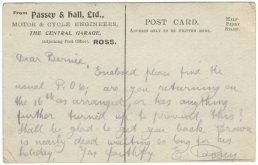 From Passey & Hall, Ltd.,
MOTOR & CYCLE ENGINEERS,
THE CENTRAL GARAGE,
(Adjoining Post Office), ROSS.
POST CARD.
ADDRESS ONLY TO BE WRITTEN HERE.
HALF
PENNY
STAMP.
Dear Bernie,
Enclosed please find the
usual P.O. are you returning on
the 16th as arranged, or has anything
further turned up to prevent this?
Shall be glad to get you back,
is nearly dead waiting so long for his
holiday. Yrs faithfully Passey